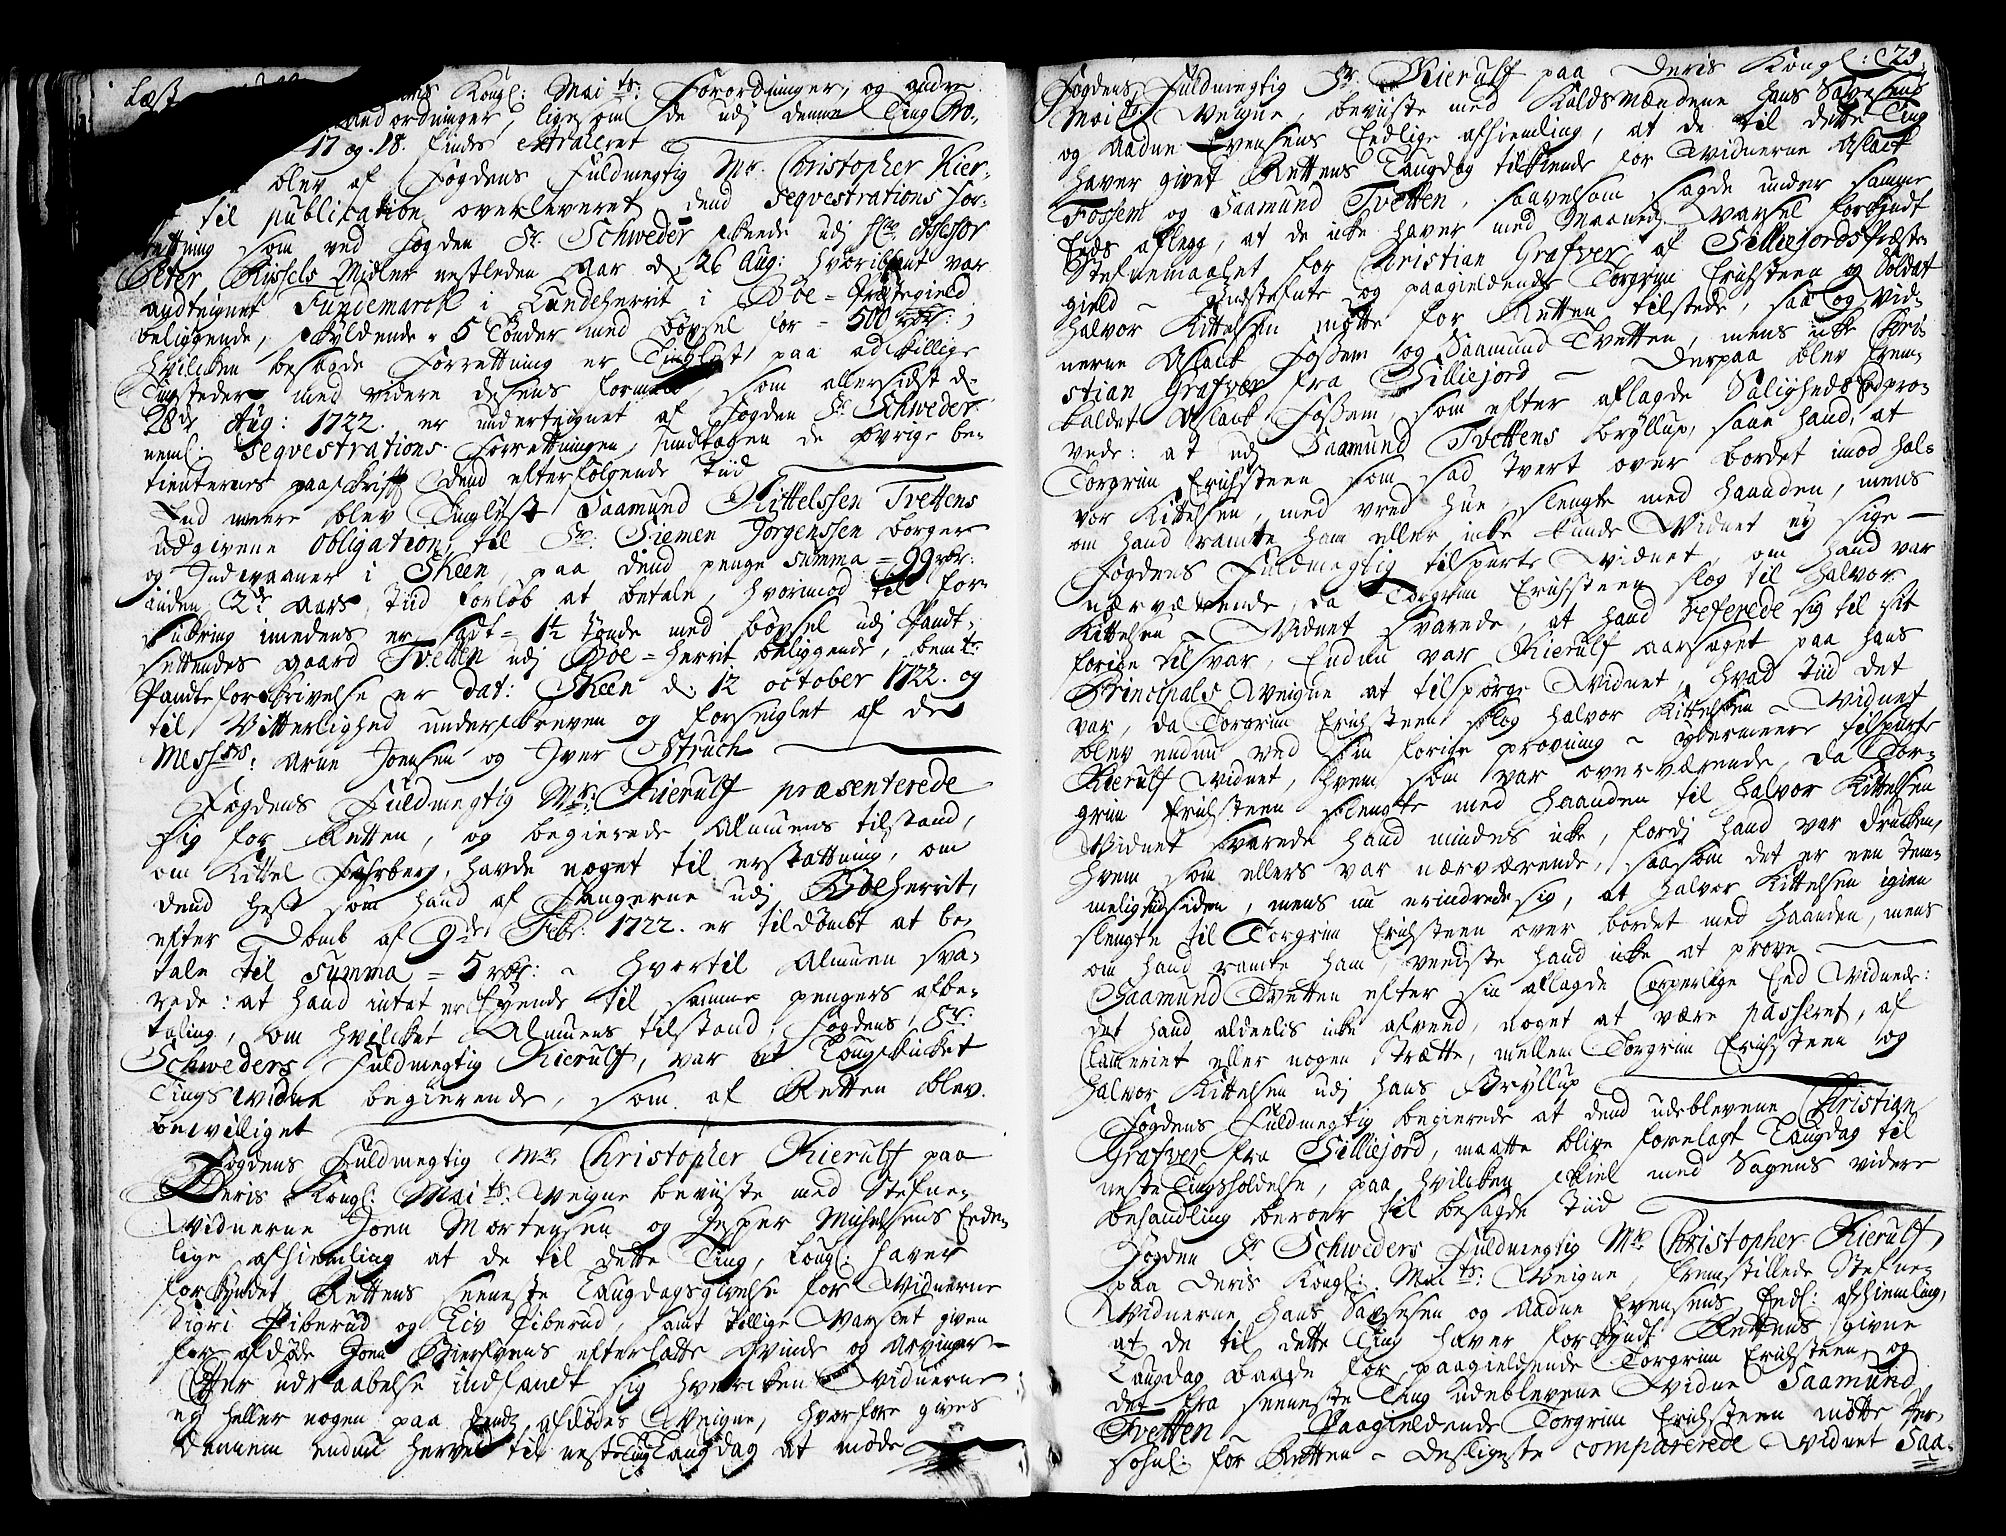 Læst
Kongl: Maits: Forordninger, og andre
andordninger, ligesom de udj denne Ting Pro-
17 og 18. findes extraheret
blev af Fogdens Fuldmegtig Mr. Christopher Kier-
til publication overleveret dend Seqvestrations For-
rettning som ved Fogden Sr. Schweder skeede udj Sl. Assessor
Peter Kissels Midler nestleden Aar d. 26 Aug: hvoriblant var
andteignet Fundemarck i Lundeherrit i Bøe-Præstegield
beliggende, skyldende 5 Tønder med bøxsel for - 500 rdr:
hvilken besagde Forrettning er Tinglyst paa adskillige
Tingsteder med videre desens formeld, som allersidst d.
28de Aug: 1722. er underteignet af Fogden Sr. Schweder
neml: Seqvestrations Forrettningen, undtagen de øvrige be-
tienternes paaskrifft dend efterfølgende Tiid
End meere blev Tinglyst Saamund Kittelssen Tvettens
udgivene Obligation til Sr. Siemen Jørgenssen borger
og Indvaaner i Skeen, paa dend penge summa = 99 rdr:
inden 2de Aars Tiid forløb at betale, hvorimod til for-
sickring imedens er satt = 1½ Tønde med bøxsel udj Pandt-
settendes gaard Tvetten udj Bøe-herrit beliggende, bemte
Pandteforskrivelse er dat: Skeen d. 12 october 1722. og
til Vitterlighed underskreven og forseiglet af de
Messrs: Arne Joensen og Iver Struch
Fogdens Fuldmegtig Mr: Kierulf præsenterede
sig for Retten, og begierede Almuens tilstand,
om Kittel Fahrberg, havde noget til erstattning, om
dend hest som hand af Fangerne udj Bøeherrit,
efter Domb af 9de Febr: 1722. er tildømbt at be-
tale til summa = 5 rdr: - hvortil Almuen sva-
rede: at hand intet er Eyende til samme pengers afbe-
taling, om hvilcket Almuens tilstand, Fogdens, Sr:
Schweders Fuldmegtig Kierulf, var et Lougskicket
Tingsvidne begierende, som af Retten blev
bevilliget
Fogdens Fuldmegtig Mr. Christopher Kierulf paa
Deris Kongl: Maits: Veigne beviiste med Stefne-
vidnerne Joen Mortensen og Jesper Michelsens Eede-
lige afhiemling at de til dette Ting, Lougl: haver
forkyndet Rettens seeneste Laugdagsgivelse for Vidnerne
Sigri Piberud og Liv Piberud, samt tillige Varslet given
for afdøde Joen efterlatte Qvinde og Arvinger
Efter udraabelse indfandt sig hvercken Vidnerne
ej heller nogen paa dend afdødes Veigne, hvorfore gives
dennem endnu herved til nest Ting Laugdag at møde
23.
Fogdens Fuldmegtig Sr. Kierulf paa Deris Kongl:
Maits Veigne, beviiste med Kaldsmændene Hans Salvesens
og Aadne Evensens Eedlige afhiemling, at de til dette Ting
haver givet Rettens Laugdag tilkiende for Vidnerne Aslack
Fossem og Saamund Tvetten, saavelsom sagde under samme
Eeds aflegg, at de icke haver med Maaneds Varsel forkyndt
Stefnemaalet for Christian Grafver af Silliejords Præste-
gield - Indstefnte og paagieldende Torgrim Erichsteen og Soldat
Halvor Kittelsen møtte for Retten tilstede, saa og Vid-
nerne Aslack Fossem og Saamund Tvetten, mens icke Chri-
stian Grafver fra Silliejord - Derpaa blev frem-
kaldet Aslack Fossem, som efter aflagde Saligheds Eed pro-
vede: at udj Saamund Tvettens bryllup, saae hand, at
Torgrim Erichsteen som sad tvert over bordet imod Hal-
vor Kittelsen, med vred hue slengte med haanden, mens
om hand ramte ham eller icke kunde Vidnet ej sige
Fogdens Fuldmegtig tilspurte Vidnet, om hand var
nærværende, da Torgrim Erichsteen slog til Halvor
Kittelsen - Vidnet svarede, at hand refererede sig til sit
forige tilsvar, Endnu var Kierulf aarsaget paa hans
Principals Veigne at tilspørge Vidnet, hvad Tiid det
var, da Torgrim Erichsteen slog Halvor Kittelsen - Vidnet
blev endnu ved sin forige proving - ydermeere tilspurte
Kierulf vidnet, hvem som var overværende, da Tor-
grim Erichsteen slengte med haanden til Halvor Kittelsen
Vidnet svarede hand mindes icke, fordj hand var drucken,
hvem som ellers var nærværende, saasom det er een tem-
melig tiid siden, mens nu erindrede sig, at Halvor Kittelsen igien
slengte til Torgrim Erichsteen over bordet med haanden, mens
om hand ramte ham, veedste hand icke at prove
Saamund Tvetten efter sin aflagde Corperlige Eed Vidnede:
det hand aldeelis icke afveed, noget at være passeret, af
Clammerict eller nogen Trætte, mellem Torgrim Erichsteen og
Halvor Kittelsen udj hans Bryllup
Fogdens Fuldmegtig begierede at dend udeblevene Christian
Grafver fra Silliejord, maatte blive forelagt Laugdag til
neste Tingsholdelse, paa hvilcken skiel med Sagens videre
behandling beroer til besagde Tiid
Fogden Sr Schweders Fuldmegtig Mr Christopher Kierulf
paa Deris Kongl: Maits: Veigne fremstillede Stefne-
Vidnerne Hans Salvesen og Aadne Evensens Eedl: afhiemling,
at de til dette Ting haver forkyndt Rettens givne
Laugdag baade for paagieldende Torgrim Erichsteen, og
det fra seeneste Ting udeblevene Vidne Saamund
Tvetten - Paagieldende Torgrim Erichsteen møtte Per-
sohnl: for Retten - desligeste comparerede Vidnet Saa-